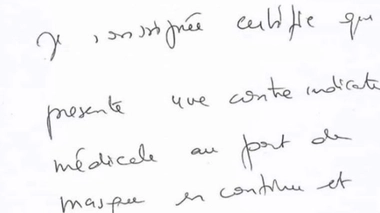 Je soussignée certifie que
présente une contre indicat
médicale au port de
masque en continu et